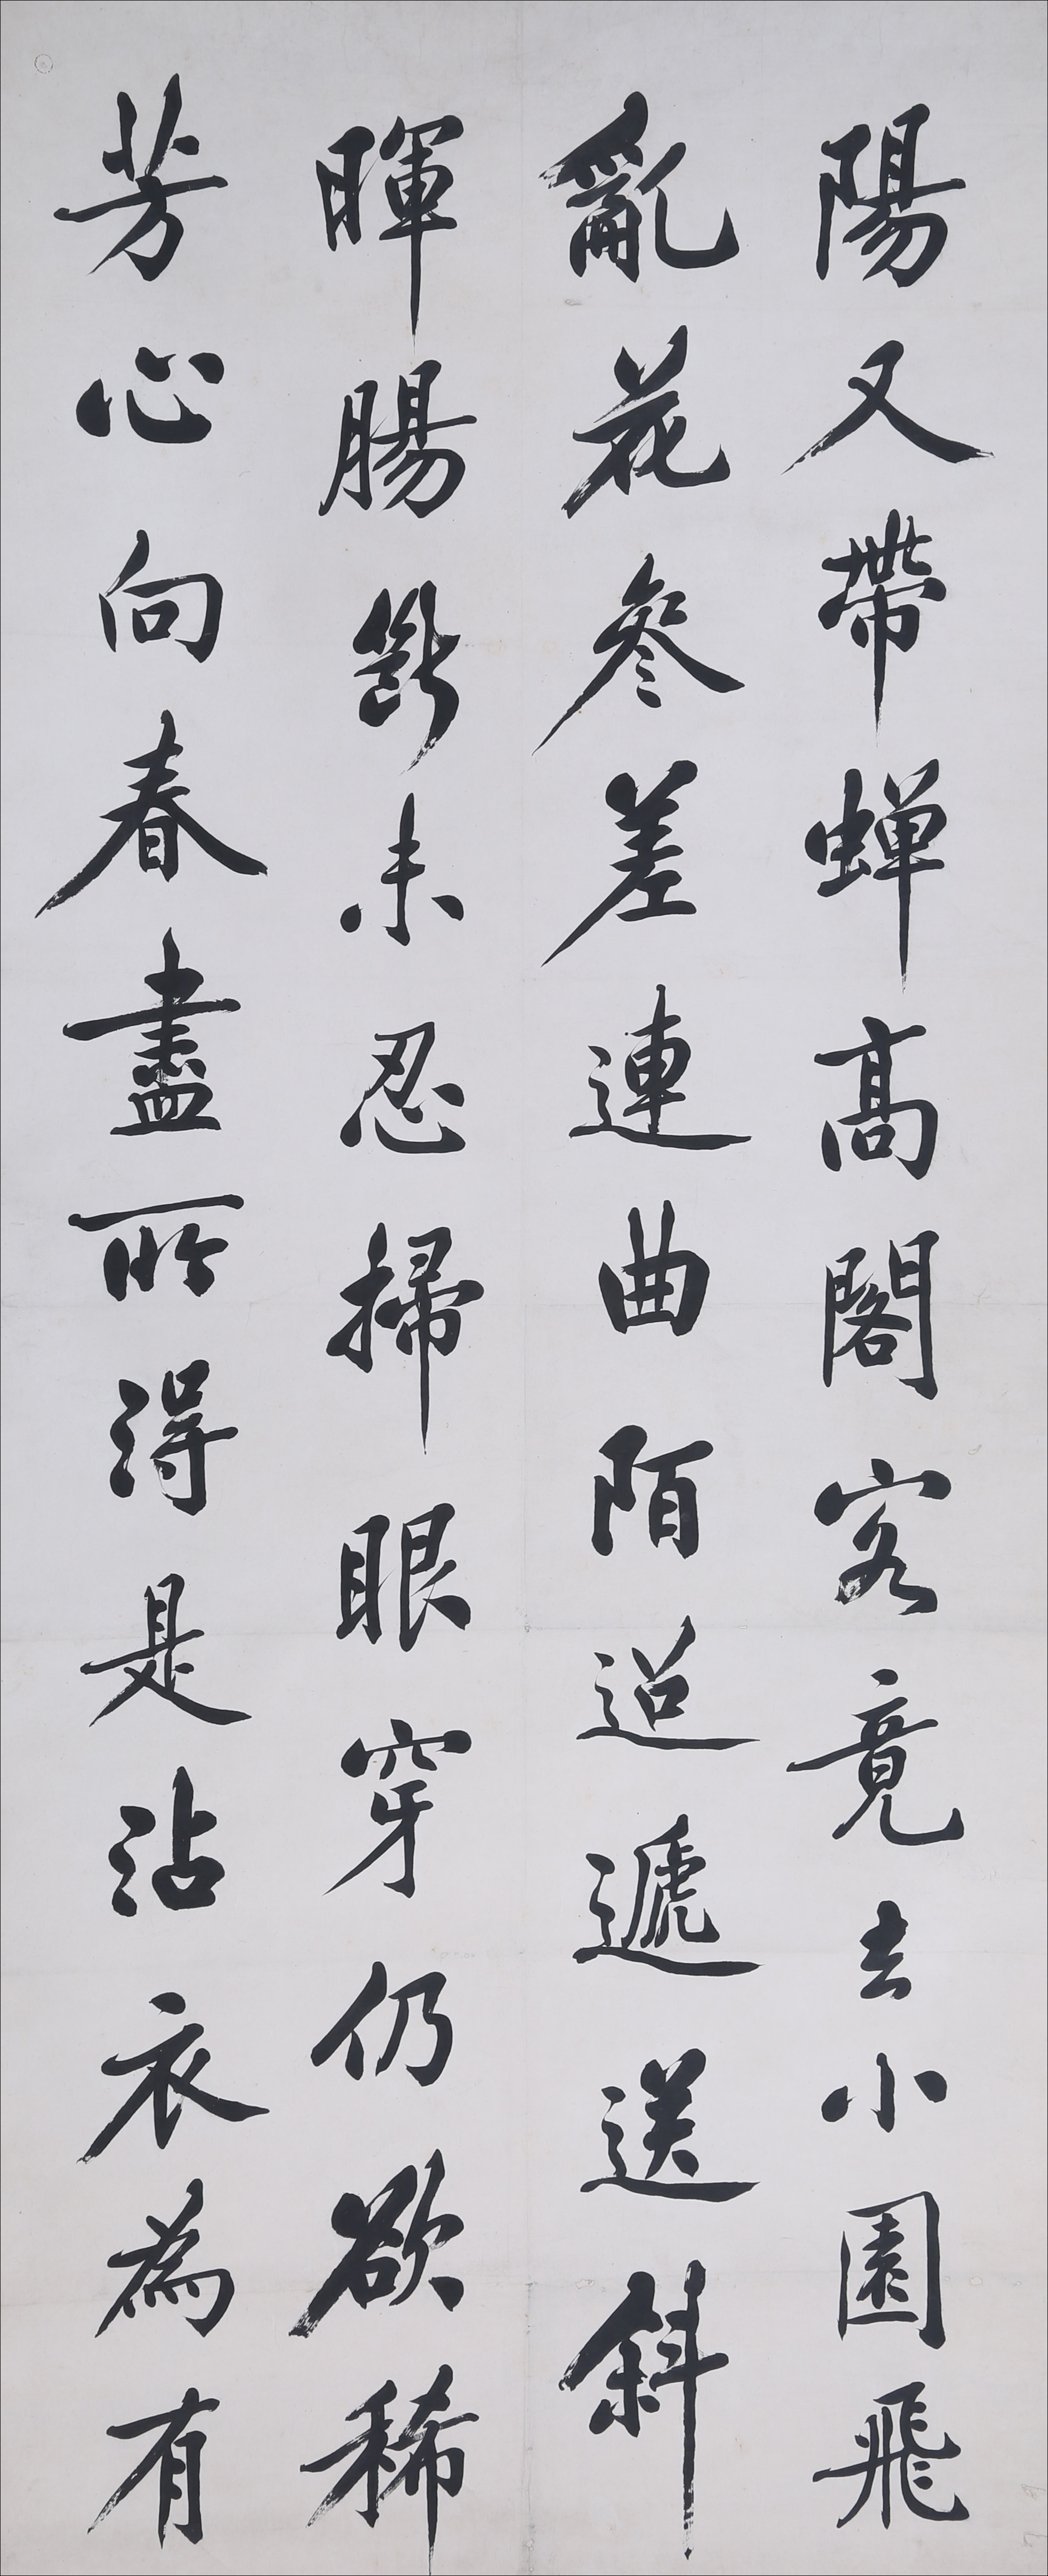 陽又帶蟬高閣客竟去小園飛
亂花參差連曲陌迢遞送斜
暉腸斷未忍掃眼穿仍欲稀
芳心向春盡所得是沾衣為有